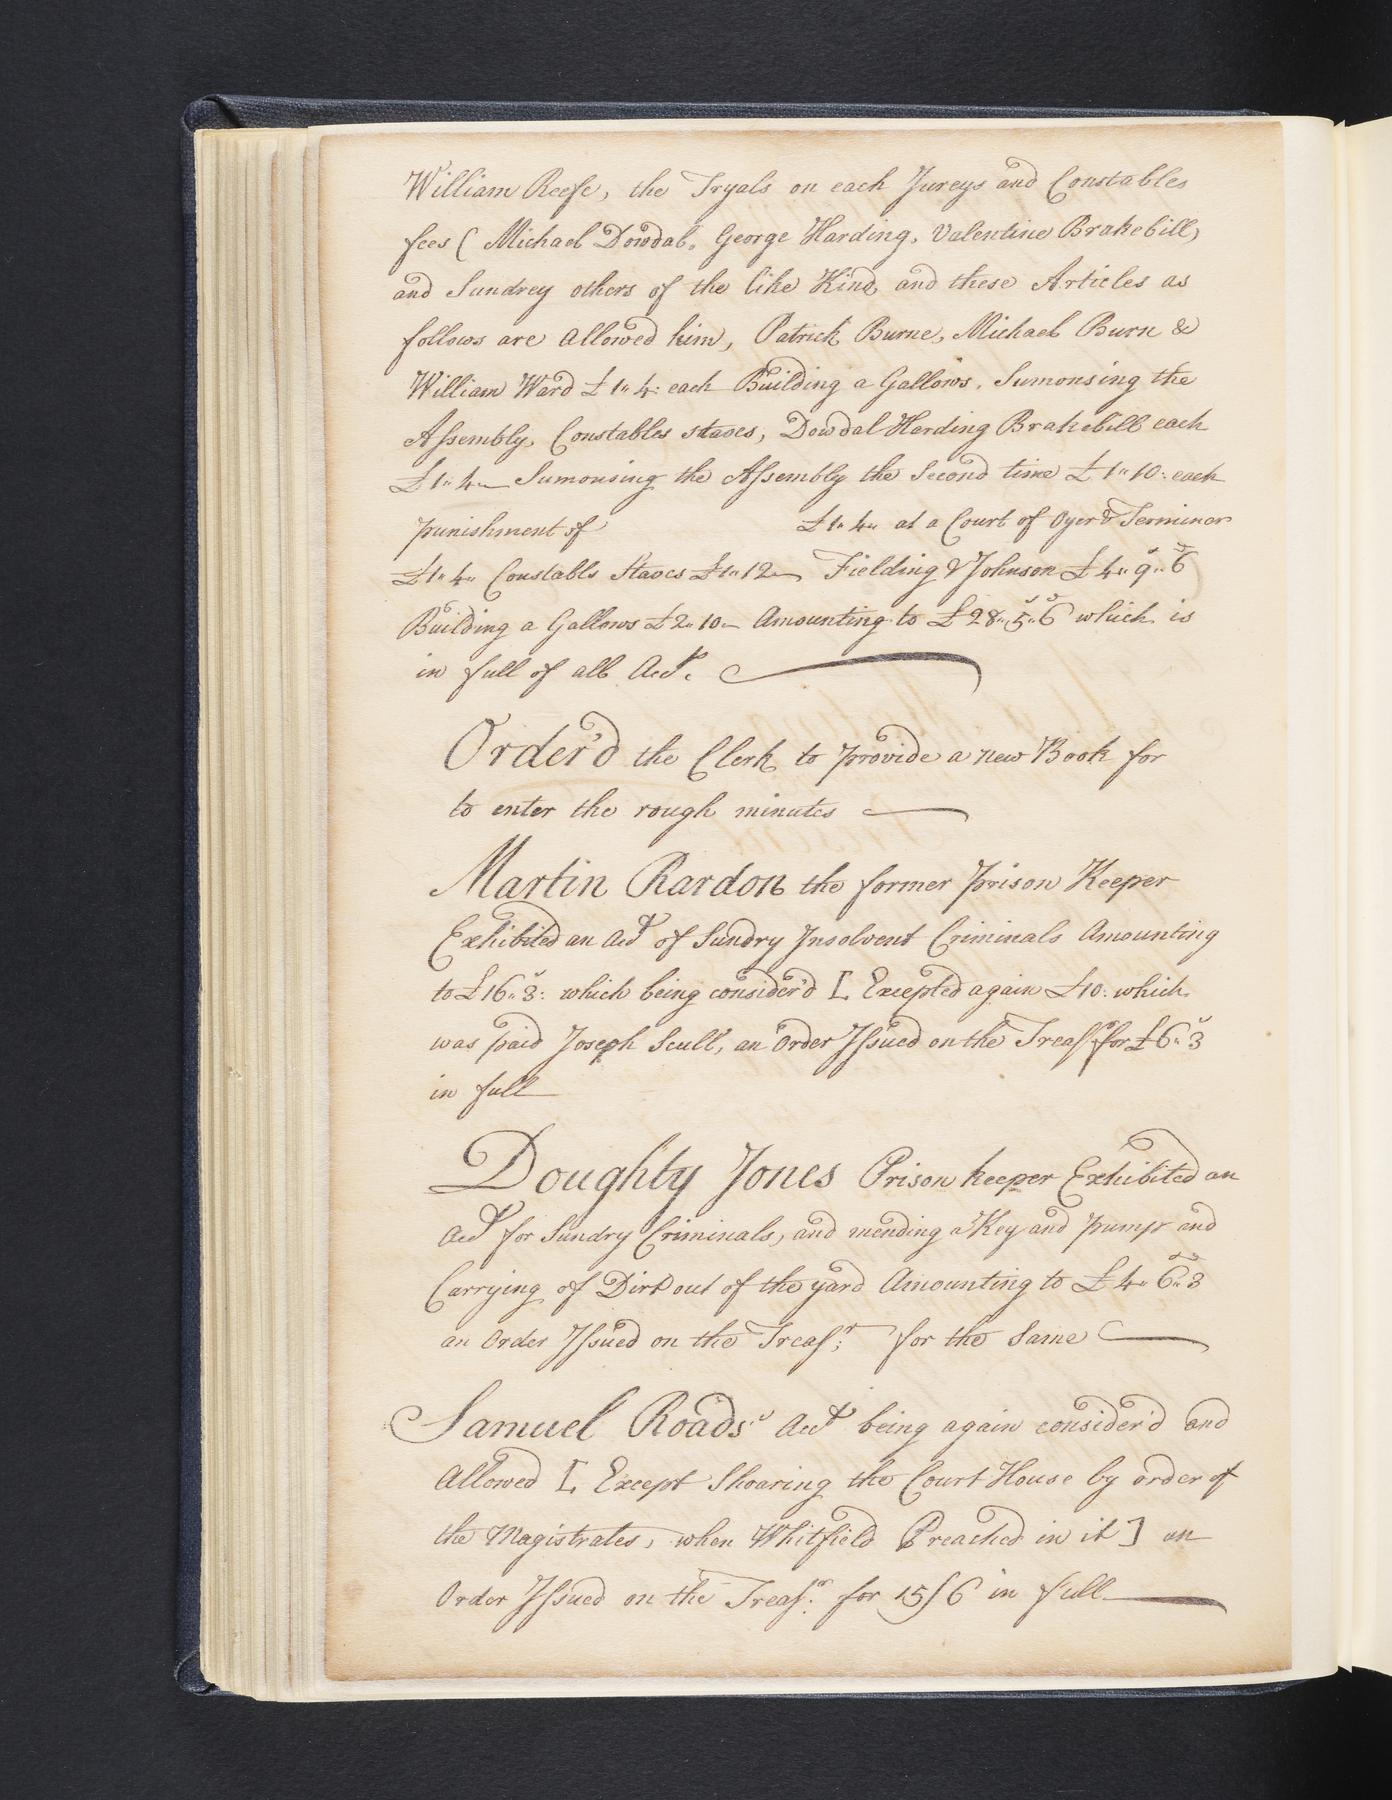 William Reese, the Tryals on each Jureys and Constables
fees ( Michael Dowdal, George Harding, Valentine Brakebill)
and Sundrey others of the like Kind, and these Articles as
follows are allowed him, Patrick Burne, Michael Burn &
William Ward £1"4: each Building a Gallows, Sumonsing the
Assembly, Constables staves, Dowdal Harding Brakebill each
£1"4"— Sumonsing the Assembly the Second time £1"10: each
punishment of £1"4" at a Court of Oyer & Terminer
£1"4" Constable Staves £1"12— Fielding & Johnson £4"9"6
Building a Gallows £2"10— Amounting to £28"5"6 which is
in full of all Acct.
Order'd the Clerk to provide a new Book for
to enter the rough minutes
Martin Rardon the former prison Keeper
Exhibited an Acct of Sundry Insolvent Criminals Amounting
to £16"3: which being consider'd [ Excepted again £10: which
was paid Joseph Scull, an order Issued on the Treasr for £6"3
in full
Doughty Jones Prison keeper Exhibited an
Acct for Sundry Criminals, and mending a Key and pump and
Carrying of Dirt out of the yard Amounting to £4"6"3
an Order Issued on the Treasr: for the Same
Samuel Roads's Acct being again consider'd and
Allowed [ Except Shoaring the Court House by order of
the Magistrates, when Whitfield Preached in it ] an
Order Issued on the Treasr: for 15/6 in full